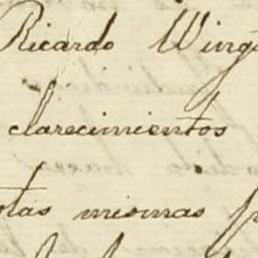 Ricardo Wing
clarecimientos
otas mismas